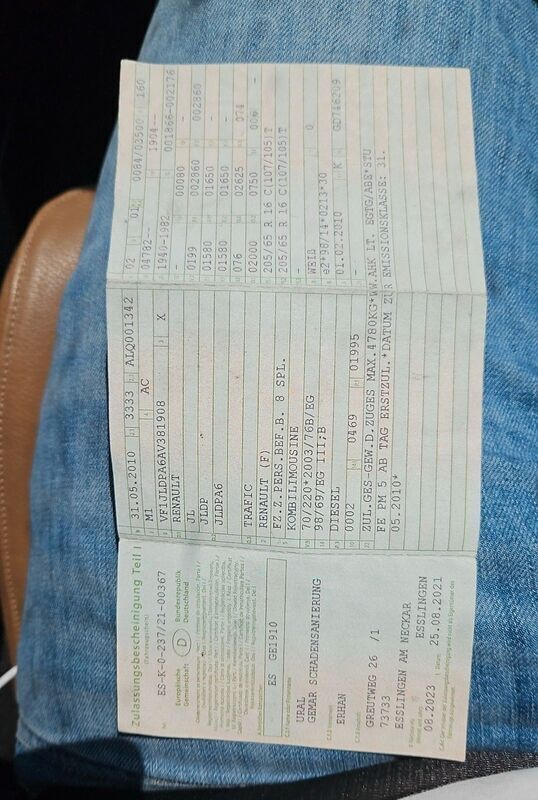 Zulassungsbescheinigung Teil I
(Fahrzeugschein)
Nr. ES-K-0-237/21-00367
Europäische
Gemeinschaft
D
Bundesrepublik
Deutschland
ES GE1910
URAL
GEMAR SCHADENSANIERUNG
ERHAN
GREUTWEG 26 /1
73733
ESSLINGEN AM NECKAR
08.2023
ESSLINGEN
25.08.2021
31.05.2010 3333 ALQ001342
M1 AC
VF1JLDPA6AV381908 X
RENAULT
JL
JLDP
JLDPA6
TRAFIC
RENAULT (F)
FZ.Z.PERS.BEF.B. 8 SPL.
KOMBILIMOUSINE
70/220*2003/76B/EG
98/69/EG III;B
DIESEL
0002 0469 01995
ZUL.GES-GEW.D.ZUGES MAX.4780KG*WW.AHK LT. EGTG/ABE*STU
FE PM 5 AB TAG ERSTZUL.*DATUM ZUR EMISSIONSKLASSE: 31.
05.2010*
02 01 0084/03500 160
04782-- 1904--
1940-1982 001866-002176
- 00080 -
0199 002860 002860
01580 01650
01580 01650
076 02625 074
02000 0750 006 -
205/65 R 16 C(107/105)T
205/65 R 16 C(107/105)T
-
WEIß 0
e2*98/14*0213*30
01.02.2010 K GD746209
-